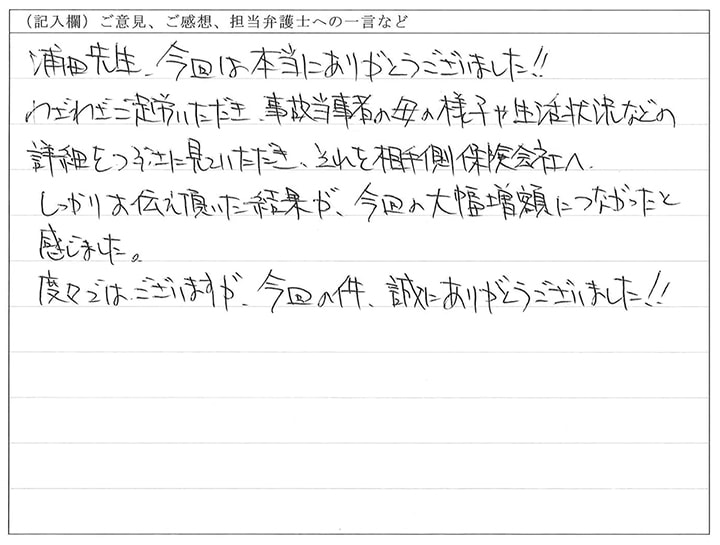 （記入欄）ご意見、ご感想、担当弁護士への一言など
浦田先生、今回は本当にありがとうございました!!
わざわざご足労いただき、事故当事者の母の様子や生活状況などの
詳細をつぶさに見ていただき、それを相手側保険会社へ
しっかりお伝え頂いた結果が、今回の大幅増額につながったと
感じました。
度々ではございますが、今回の件、誠にありがとうございました!!